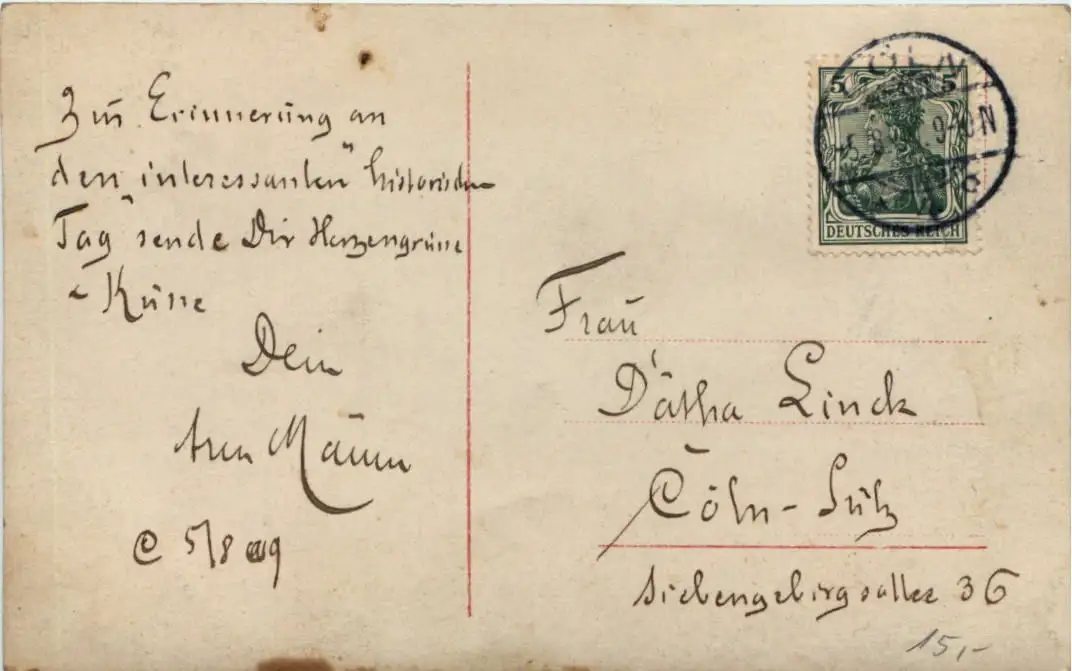 Zur Erinnerung an
den interessanten "historischen
Tag" sende Dir Herzensgrüsse
Küsse
Dein
Männ
C 5/8 09
5 5
CÖLN
9-10N
DEUTSCHES REICH
Frau
Linck
Cöln-Sülz
Siebengebirgsallee 36
15,-